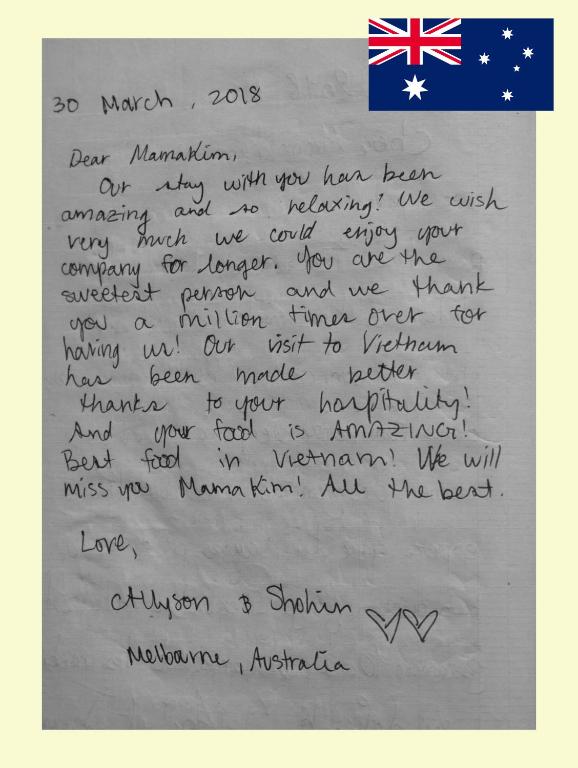 30 March, 2018
Dear MamaKim,
Our stay with you has been
amazing and so relaxing! We wish
very much we could enjoy your
company for longer. You are the
sweetest person and we thank
you a million times over for
having us! Our visit to Vietnam
has been made better
thanks to your hospitality!
And your food is AMAZING!
Best food in Vietnam! We will
miss you MamaKim! All the best.
Love,
Allyson & Shohin
Melbourne, Australia